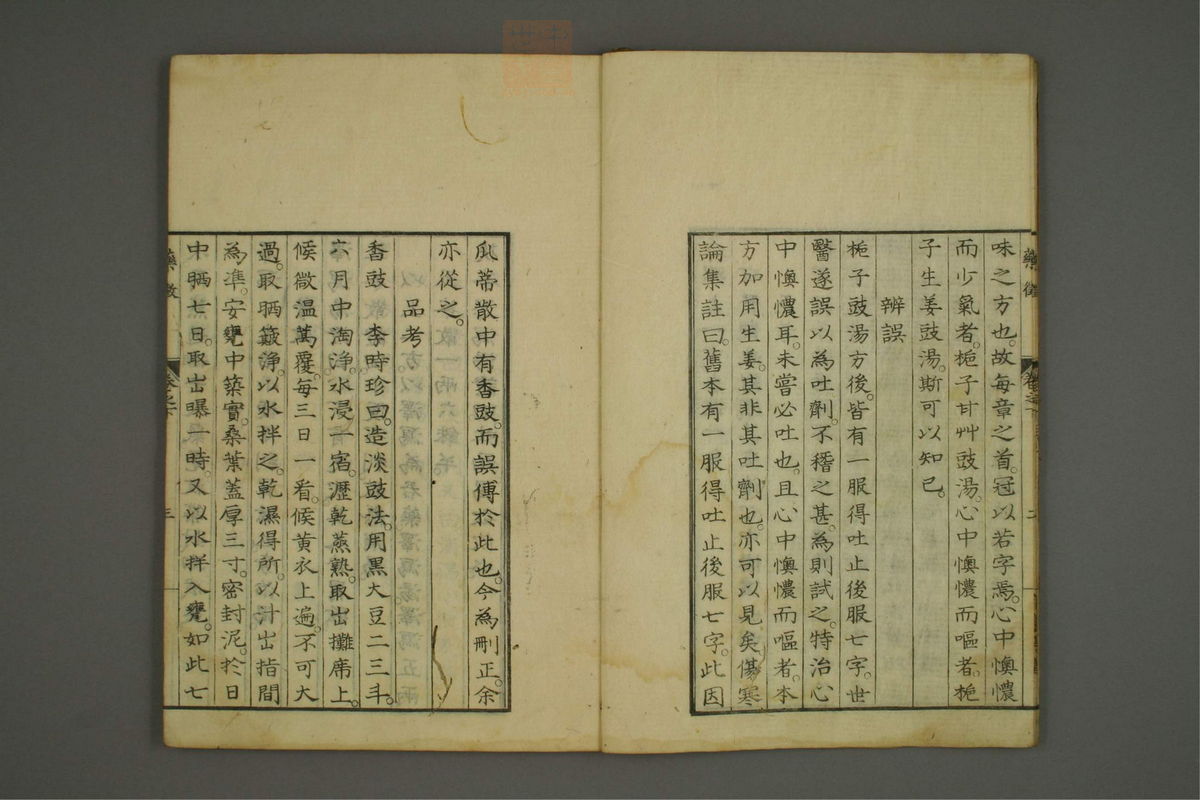 味之方也。故每章之首。冠以若字焉。心中懊憹
而少氣者。梔子甘艸豉湯。心中懊憹而嘔者。梔
子生姜豉湯。斯可以知已。
辨誤
梔子豉湯方後。皆有一服得吐止後服七字。世
醫遂誤以為吐劑。不稽之甚。為則試之。特治心
中懊憹耳。未嘗必吐也。且心中懊憹而嘔者。本
方加用生姜。其非其吐劑也。亦可以見矣。傷寒
論集註曰。舊本有一服得吐止後服七字。此因
瓜蒂散中有香豉。而誤傳於此也。今為刪正。余
亦從之。
品考
香豉 李時珍曰。造淡豉法。用黑大豆二三斗。
六月中淘淨。水浸一宿。瀝乾蒸熟。取出攤席上。
候微溫蒿覆。每三日一看。候黃衣上遍。不可大
過。取晒簸淨。以水拌之。乾濕得所。以汁出指間
為準。安甕中築實。桑葉蓋厚三寸。密封泥。於日
中晒七日。取出曝一時。又以水拌入甕。如此七
藥徵
卷之下
三